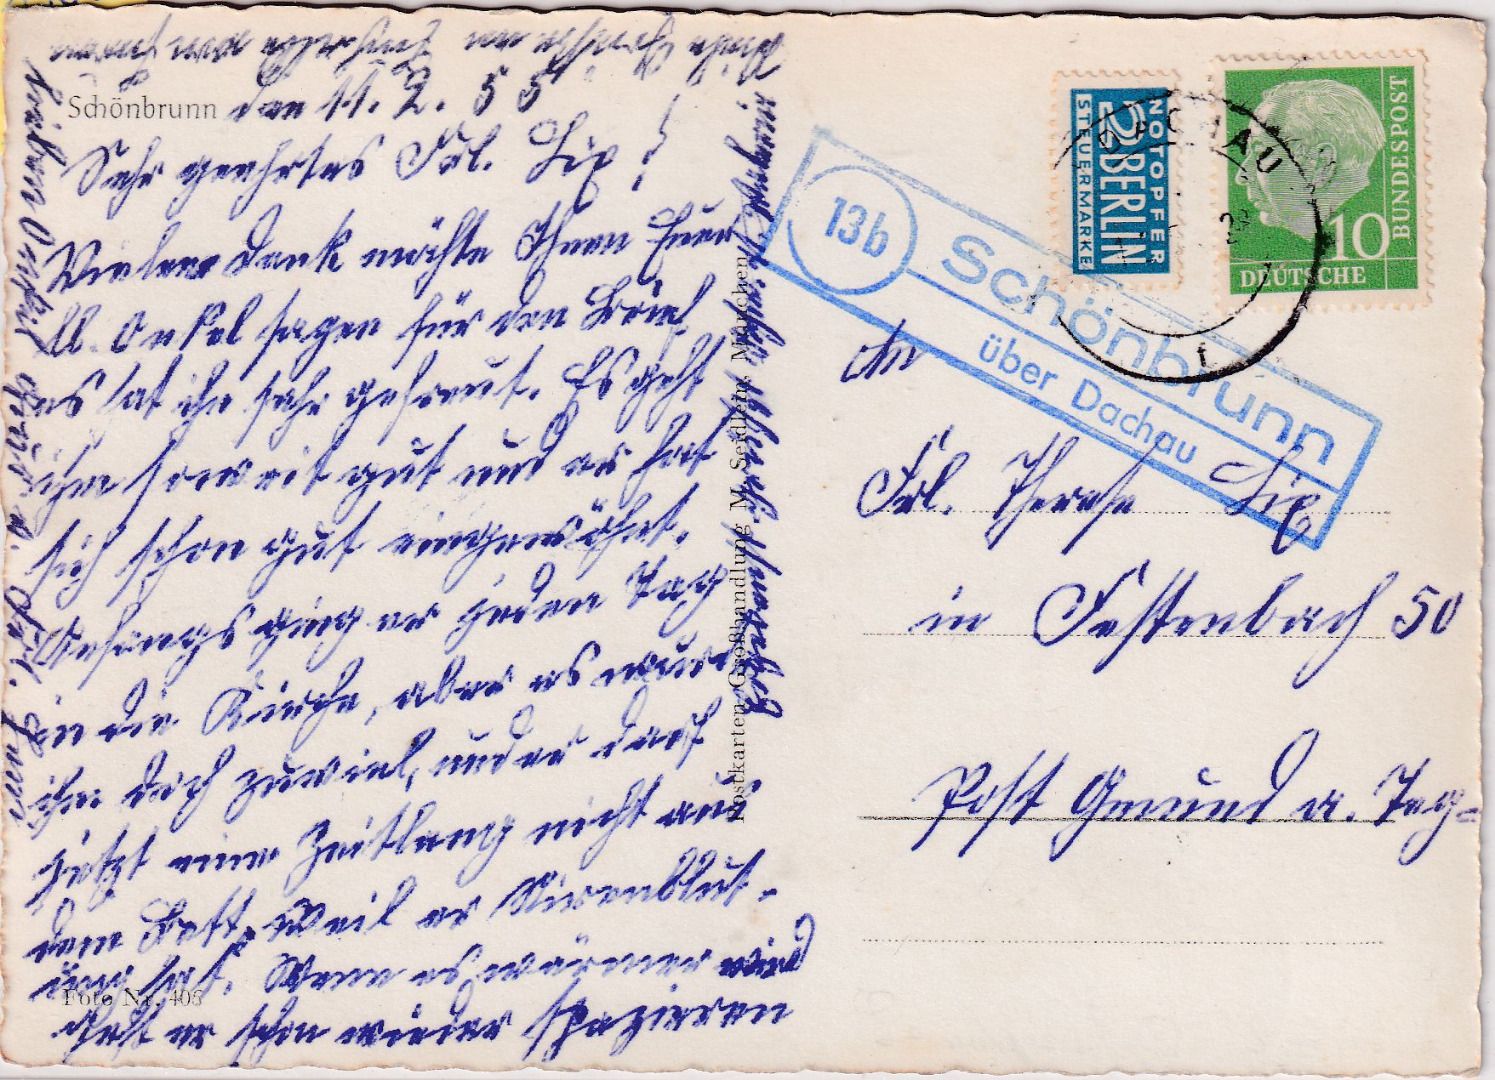 Schönbrunn den 11. 2. 55
Sehr geehrtes Frl. Lix!
Vielen Dank möchte Ihnen Euer
lb. Onkel sagen für den Brief,
es hat ihn sehr gefreut. Es geht
ihm soweit gut und er hat
sich schon gut eingewöhnt.
Anfangs ging er jeden Tag
in die Kirche, aber es wurde
ihm doch zuviel, und er darf
jetzt eine Zeitlang nicht aus
dem Bett, weil er Nierenblut-
ung hat. Wenn es wärmer wird
geht er schon wieder spazieren
Foto Nr. 406
Postkarten-Großhandlung M. Seidlein, München
lieben Onkel
NOTOPFER
2 BERLIN
STEUERMARKE
DEUTSCHE
BUNDESPOST
10
DACHAU
13b
Schönbrunn
über Dachau
An
Frl. Therese Lix
in Festenbach 50
Post Gmund a. Teg=